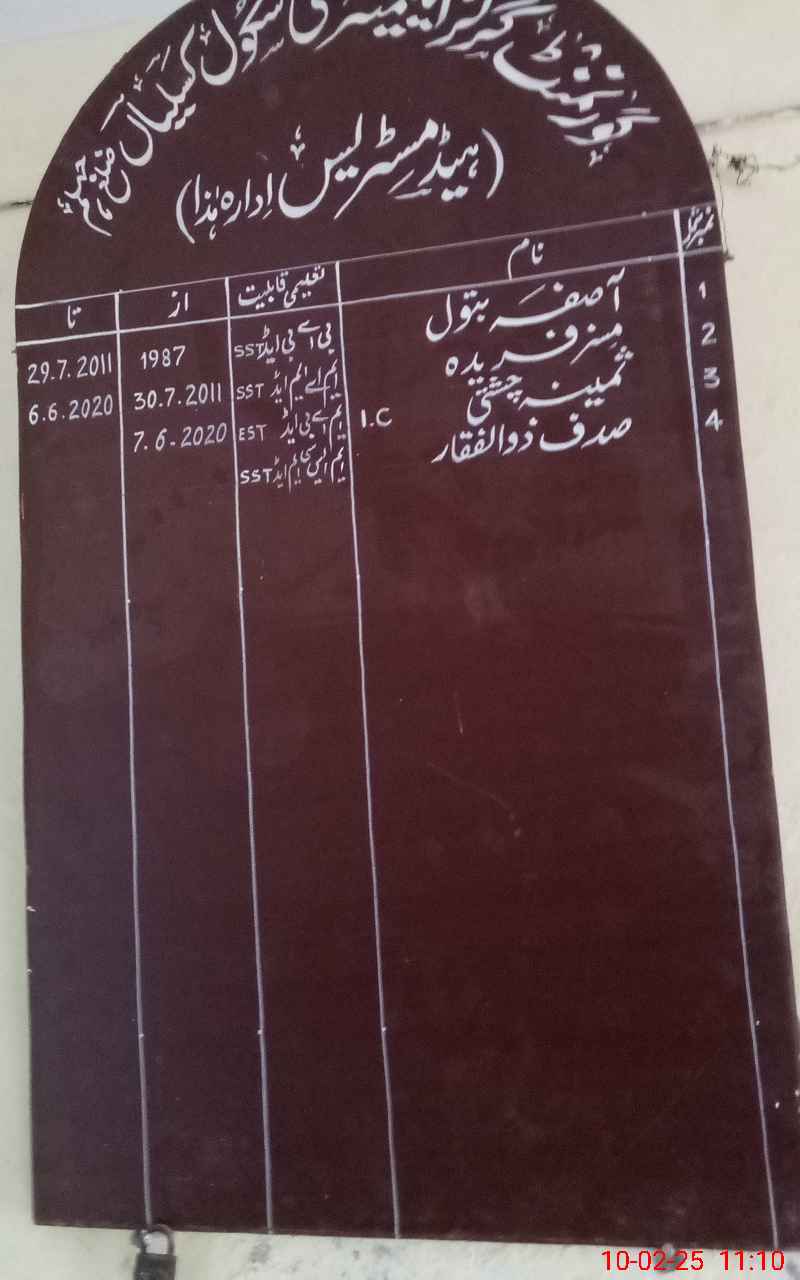 گورنمنٹ گرلز ایلیمنٹری سکول کسیلیاں ضلع جہلم
(ہیڈ مسٹریس ادارہ ہٰذا)
نمبر شمار نام تعلیمی قابلیت از تا
1 آصفہ بتول بی اے بی ایڈ SST 1987 29.7.2011
2 مسز فریدہ ایم اے ایم ایڈ SST 30.7.2011 6.6.2020
3 ثمینہ چشتی I.C ایم اے بی ایڈ EST 7.6-2020
4 صدف ذوالفقار ایم ایس سی ایم ایڈ SST
10-02-25 11:10